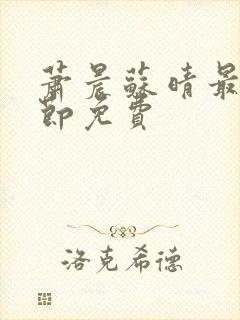 萧晨苏晴最
节免费
洛克希德